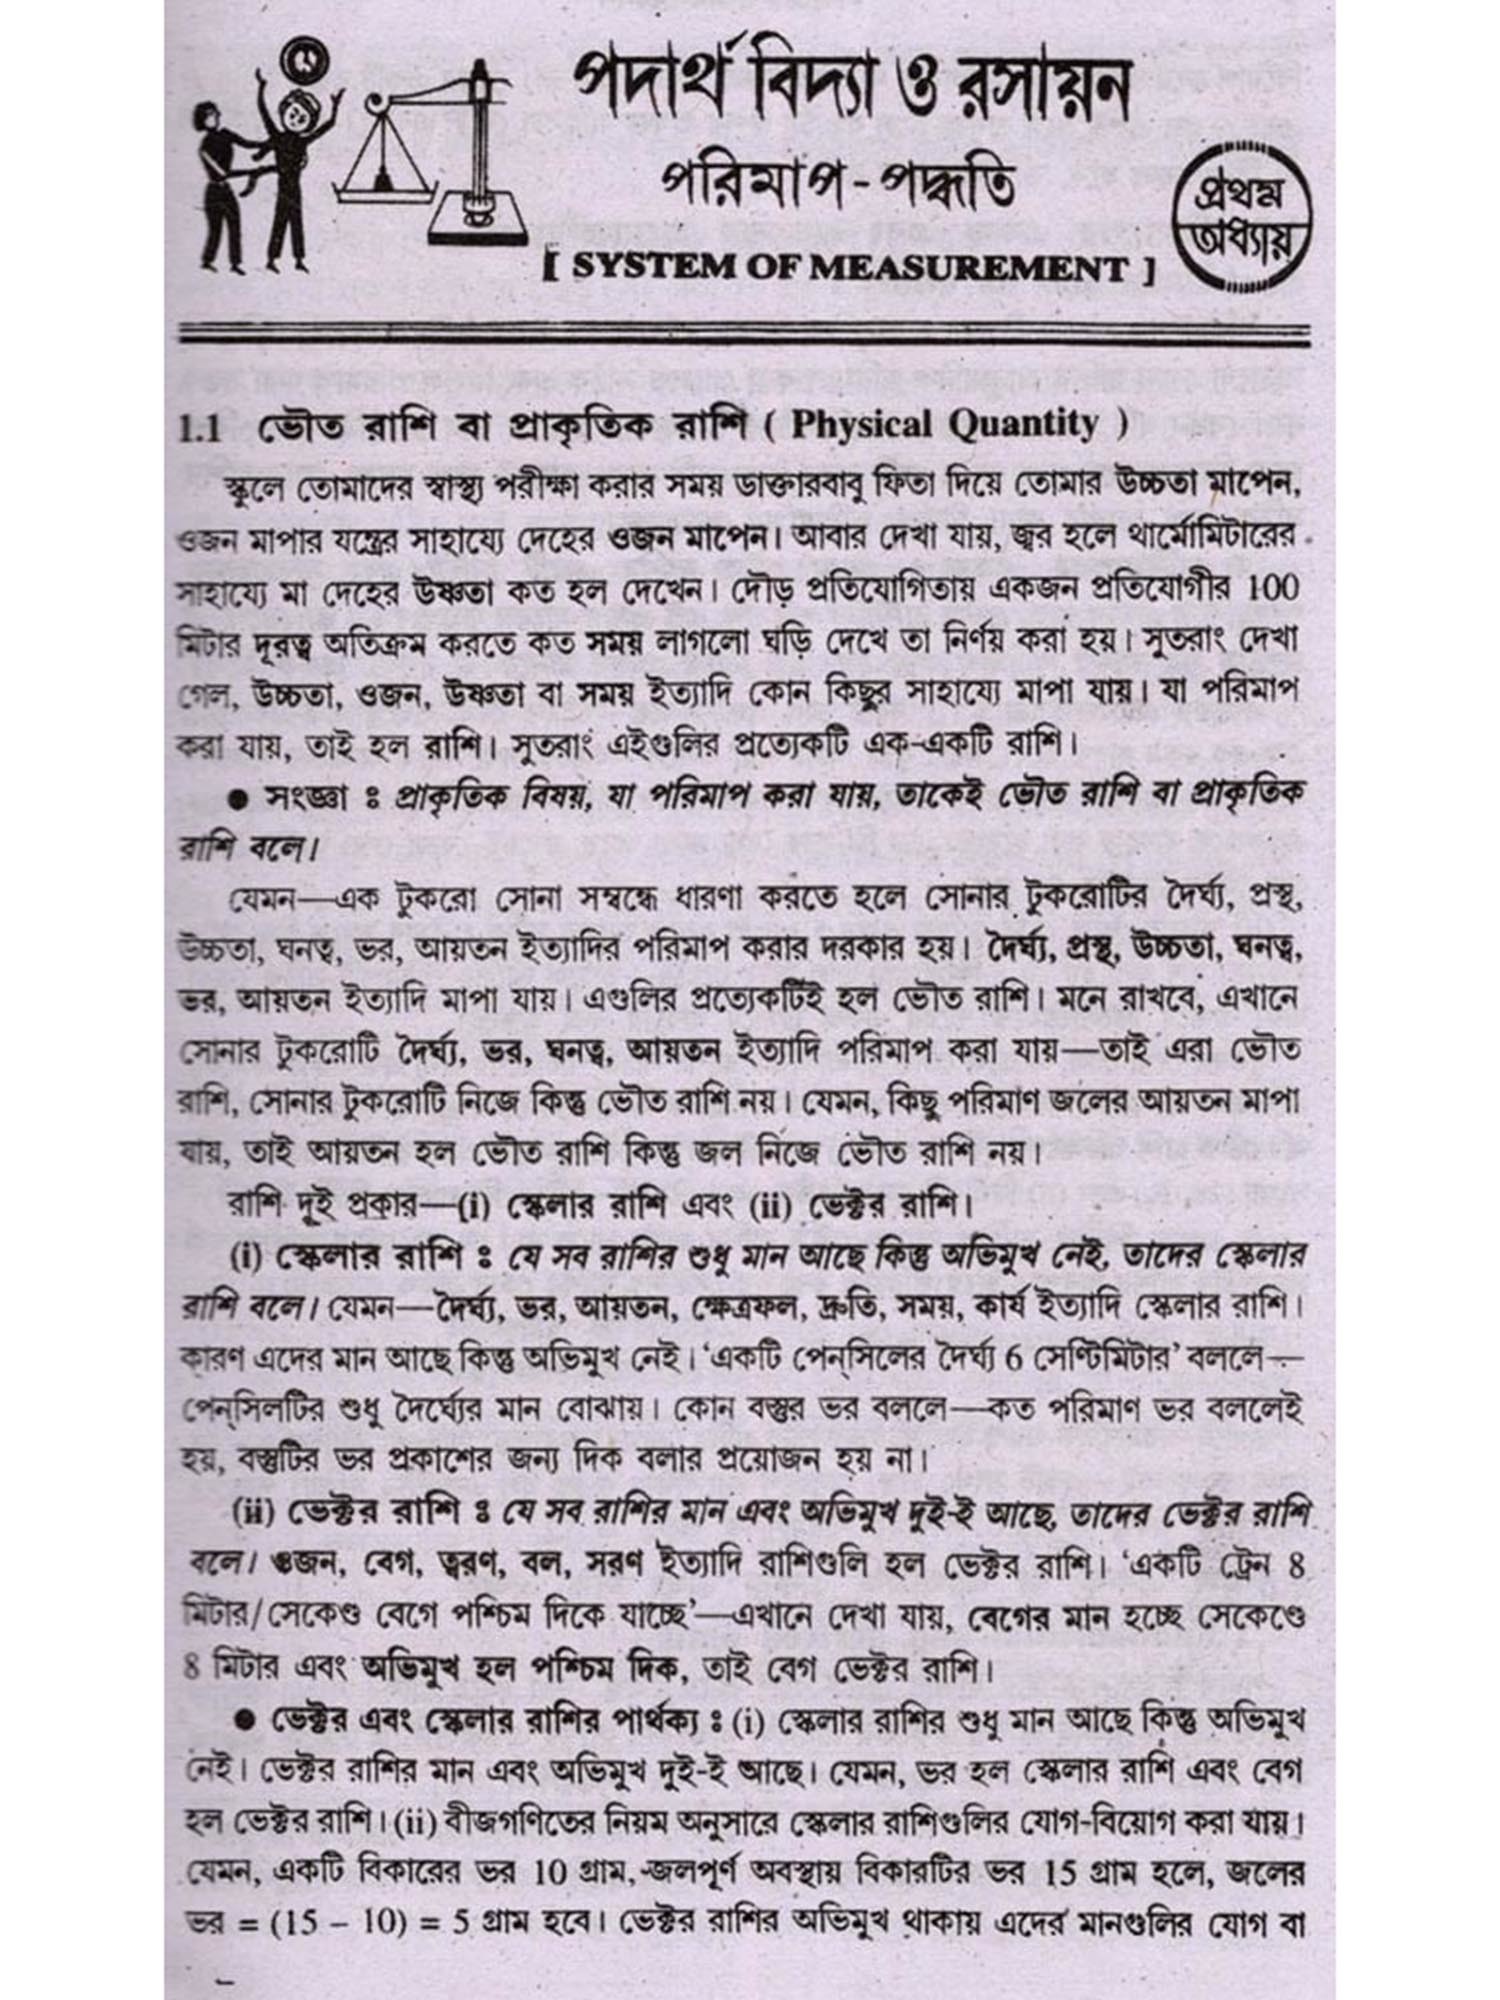 পদার্থ বিদ্যা ও রসায়ন
পরিমাপ-পদ্ধতি
[ SYSTEM OF MEASUREMENT ]
প্রথম
অধ্যায়
1.1 ভৌত রাশি বা প্রাকৃতিক রাশি ( Physical Quantity )
স্কুলে তোমাদের স্বাস্থ্য পরীক্ষা করার সময় ডাক্তারবাবু ফিতা দিয়ে তোমার উচ্চতা মাপেন,
ওজন মাপার যন্ত্রের সাহায্যে দেহের ওজন মাপেন। আবার দেখা যায়, জ্বর হলে থার্মোমিটারের
সাহায্যে মা দেহের উষ্ণতা কত হল দেখেন। দৌড় প্রতিযোগিতায় একজন প্রতিযোগীর 100
মিটার দূরত্ব অতিক্রম করতে কত সময় লাগলো ঘড়ি দেখে তা নির্ণয় করা হয়। সুতরাং দেখা
গেল, উচ্চতা, ওজন, উষ্ণতা বা সময় ইত্যাদি কোন কিছুর সাহায্যে মাপা যায়। যা পরিমাপ
করা যায়, তাই হল রাশি। সুতরাং এইগুলির প্রত্যেকটি এক-একটি রাশি।
● সংজ্ঞা ঃ প্রাকৃতিক বিষয়, যা পরিমাপ করা যায়, তাকেই ভৌত রাশি বা প্রাকৃতিক
রাশি বলে।
যেমন—এক টুকরো সোনা সম্বন্ধে ধারণা করতে হলে সোনার টুকরোটির দৈর্ঘ্য, প্রস্থ,
উচ্চতা, ঘনত্ব, ভর, আয়তন ইত্যাদির পরিমাপ করার দরকার হয়। দৈর্ঘ্য, প্রস্থ, উচ্চতা, ঘনত্ব,
ভর, আয়তন ইত্যাদি মাপা যায়। এগুলির প্রত্যেকটিই হল ভৌত রাশি। মনে রাখবে, এখানে
সোনার টুকরোটি দৈর্ঘ্য, ভর, ঘনত্ব, আয়তন ইত্যাদি পরিমাপ করা যায়—তাই এরা ভৌত
রাশি, সোনার টুকরোটি নিজে কিন্তু ভৌত রাশি নয়। যেমন, কিছু পরিমাণ জলের আয়তন মাপা
যায়, তাই আয়তন হল ভৌত রাশি কিন্তু জল নিজে ভৌত রাশি নয়।
রাশি দুই প্রকার—(i) স্কেলার রাশি এবং (ii) ভেক্টর রাশি।
(i) স্কেলার রাশি ঃ যে সব রাশির শুধু মান আছে কিন্তু অভিমুখ নেই, তাদের স্কেলার
রাশি বলে। যেমন—দৈর্ঘ্য, ভর, আয়তন, ক্ষেত্রফল, দ্রুতি, সময়, কার্য ইত্যাদি স্কেলার রাশি।
কারণ এদের মান আছে কিন্তু অভিমুখ নেই। ‘একটি পেন্‌সিলের দৈর্ঘ্য 6 সেণ্টিমিটার’ বললে—
পেন্‌সিলটির শুধু দৈর্ঘ্যের মান বোঝায়। কোন বস্তুর ভর বললে—কত পরিমাণ ভর বললেই
হয়, বস্তুটির ভর প্রকাশের জন্য দিক বলার প্রয়োজন হয় না।
(ii) ভেক্টর রাশি ঃ যে সব রাশির মান এবং অভিমুখ দুই-ই আছে, তাদের ভেক্টর রাশি
বলে। ওজন, বেগ, ত্বরণ, বল, সরণ ইত্যাদি রাশিগুলি হল ভেক্টর রাশি। ‘একটি ট্রেন 8
মিটার/সেকেণ্ড বেগে পশ্চিম দিকে যাচ্ছে’—এখানে দেখা যায়, বেগের মান হচ্ছে সেকেণ্ডে
8 মিটার এবং অভিমুখ হল পশ্চিম দিক, তাই বেগ ভেক্টর রাশি।
● ভেক্টর এবং স্কেলার রাশির পার্থক্য ঃ (i) স্কেলার রাশির শুধু মান আছে কিন্তু অভিমুখ
নেই। ভেক্টর রাশির মান এবং অভিমুখ দুই-ই আছে। যেমন, ভর হল স্কেলার রাশি এবং বেগ
হল ভেক্টর রাশি। (ii) বীজগণিতের নিয়ম অনুসারে স্কেলার রাশিগুলির যোগ-বিয়োগ করা যায়।
যেমন, একটি বিকারের ভর 10 গ্রাম, জলপূর্ণ অবস্থায় বিকারটির ভর 15 গ্রাম হলে, জলের
ভর = (15 – 10) = 5 গ্রাম হবে। ভেক্টর রাশির অভিমুখ থাকায় এদের মানগুলির যোগ বা